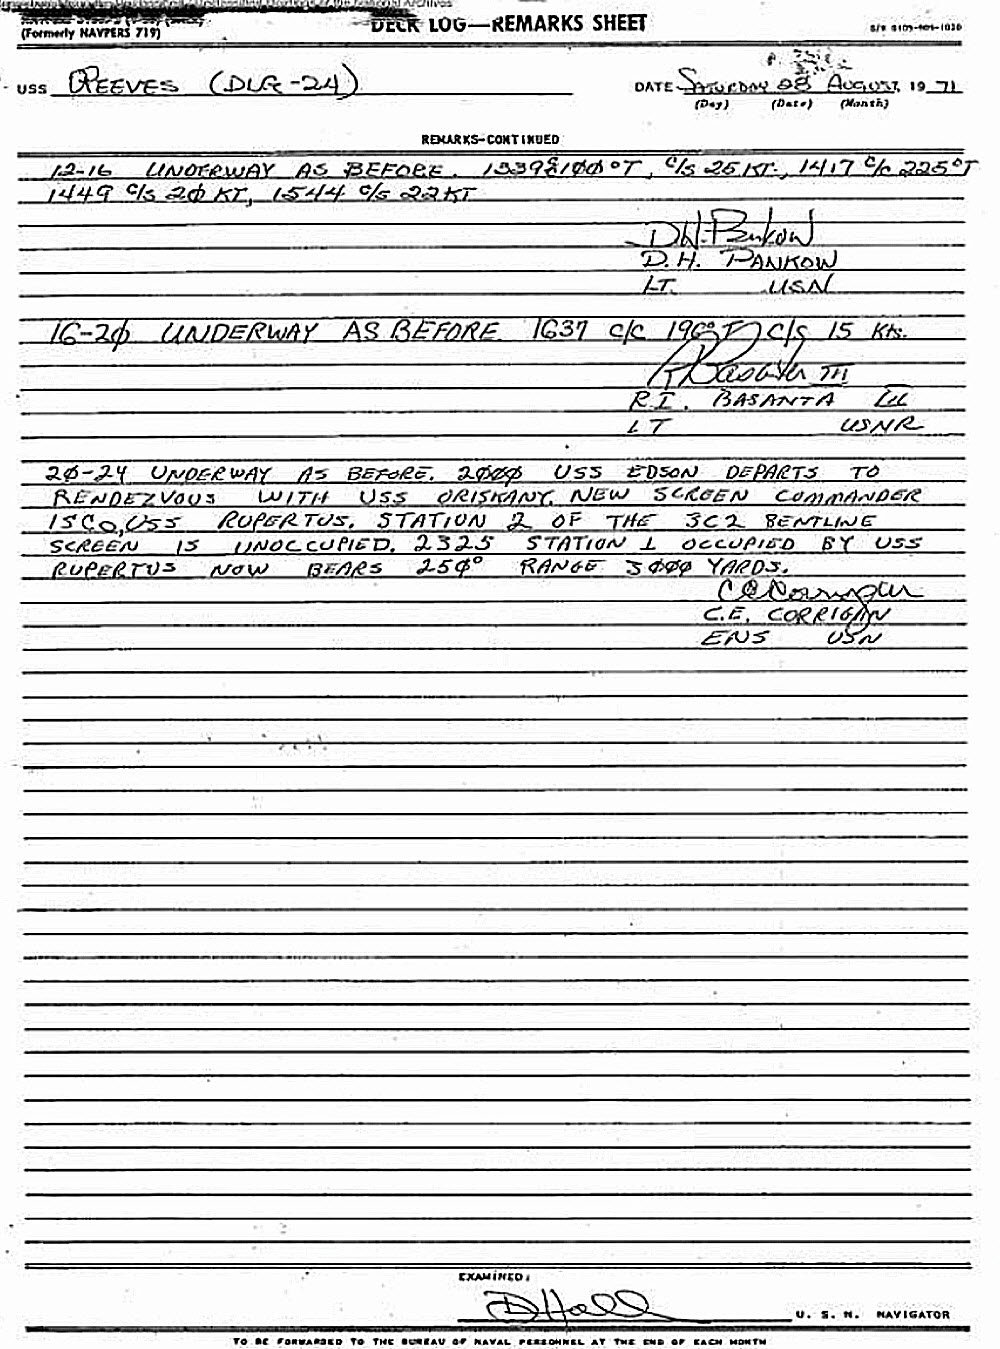 DECK LOG—REMARKS SHEET
(Formerly NAVPERS 719)
USS REEVES (DLG-24)
DATE SATURDAY 28 AUGUST, 19 71
(Day) (Date) (Month)
REMARKS—CONTINUED
12-16 UNDERWAY AS BEFORE. 1339 1ØØ°T, C/S 25 KT., 1417 C/C 225°T
1449 C/S 2Ø KT, 1544 C/S 22KT
D. H. PANKOW
LT. USN
16-2Ø UNDERWAY AS BEFORE. 1637 C/C 196°T C/S 15 Kts.
R.I. BASANTA III
LT USNR
2Ø-24 UNDERWAY AS BEFORE. 2ØØØ USS EDSON DEPARTS TO
RENDEZVOUS WITH USS ORISKANY. NEW SCREEN COMMANDER
IS CO, USS RUPERTUS. STATION 2 OF THE 3C2 BENTLINE
SCREEN IS UNOCCUPIED. 2325 STATION 1 OCCUPIED BY USS
RUPERTUS NOW BEARS 25Ø° RANGE 3ØØØ YARDS.
C.E. CORRIGAN
ENS USN
EXAMINED:
D Hall
U. S. N. NAVIGATOR
TO BE FORWARDED TO THE BUREAU OF NAVAL PERSONNEL AT THE END OF EACH MONTH